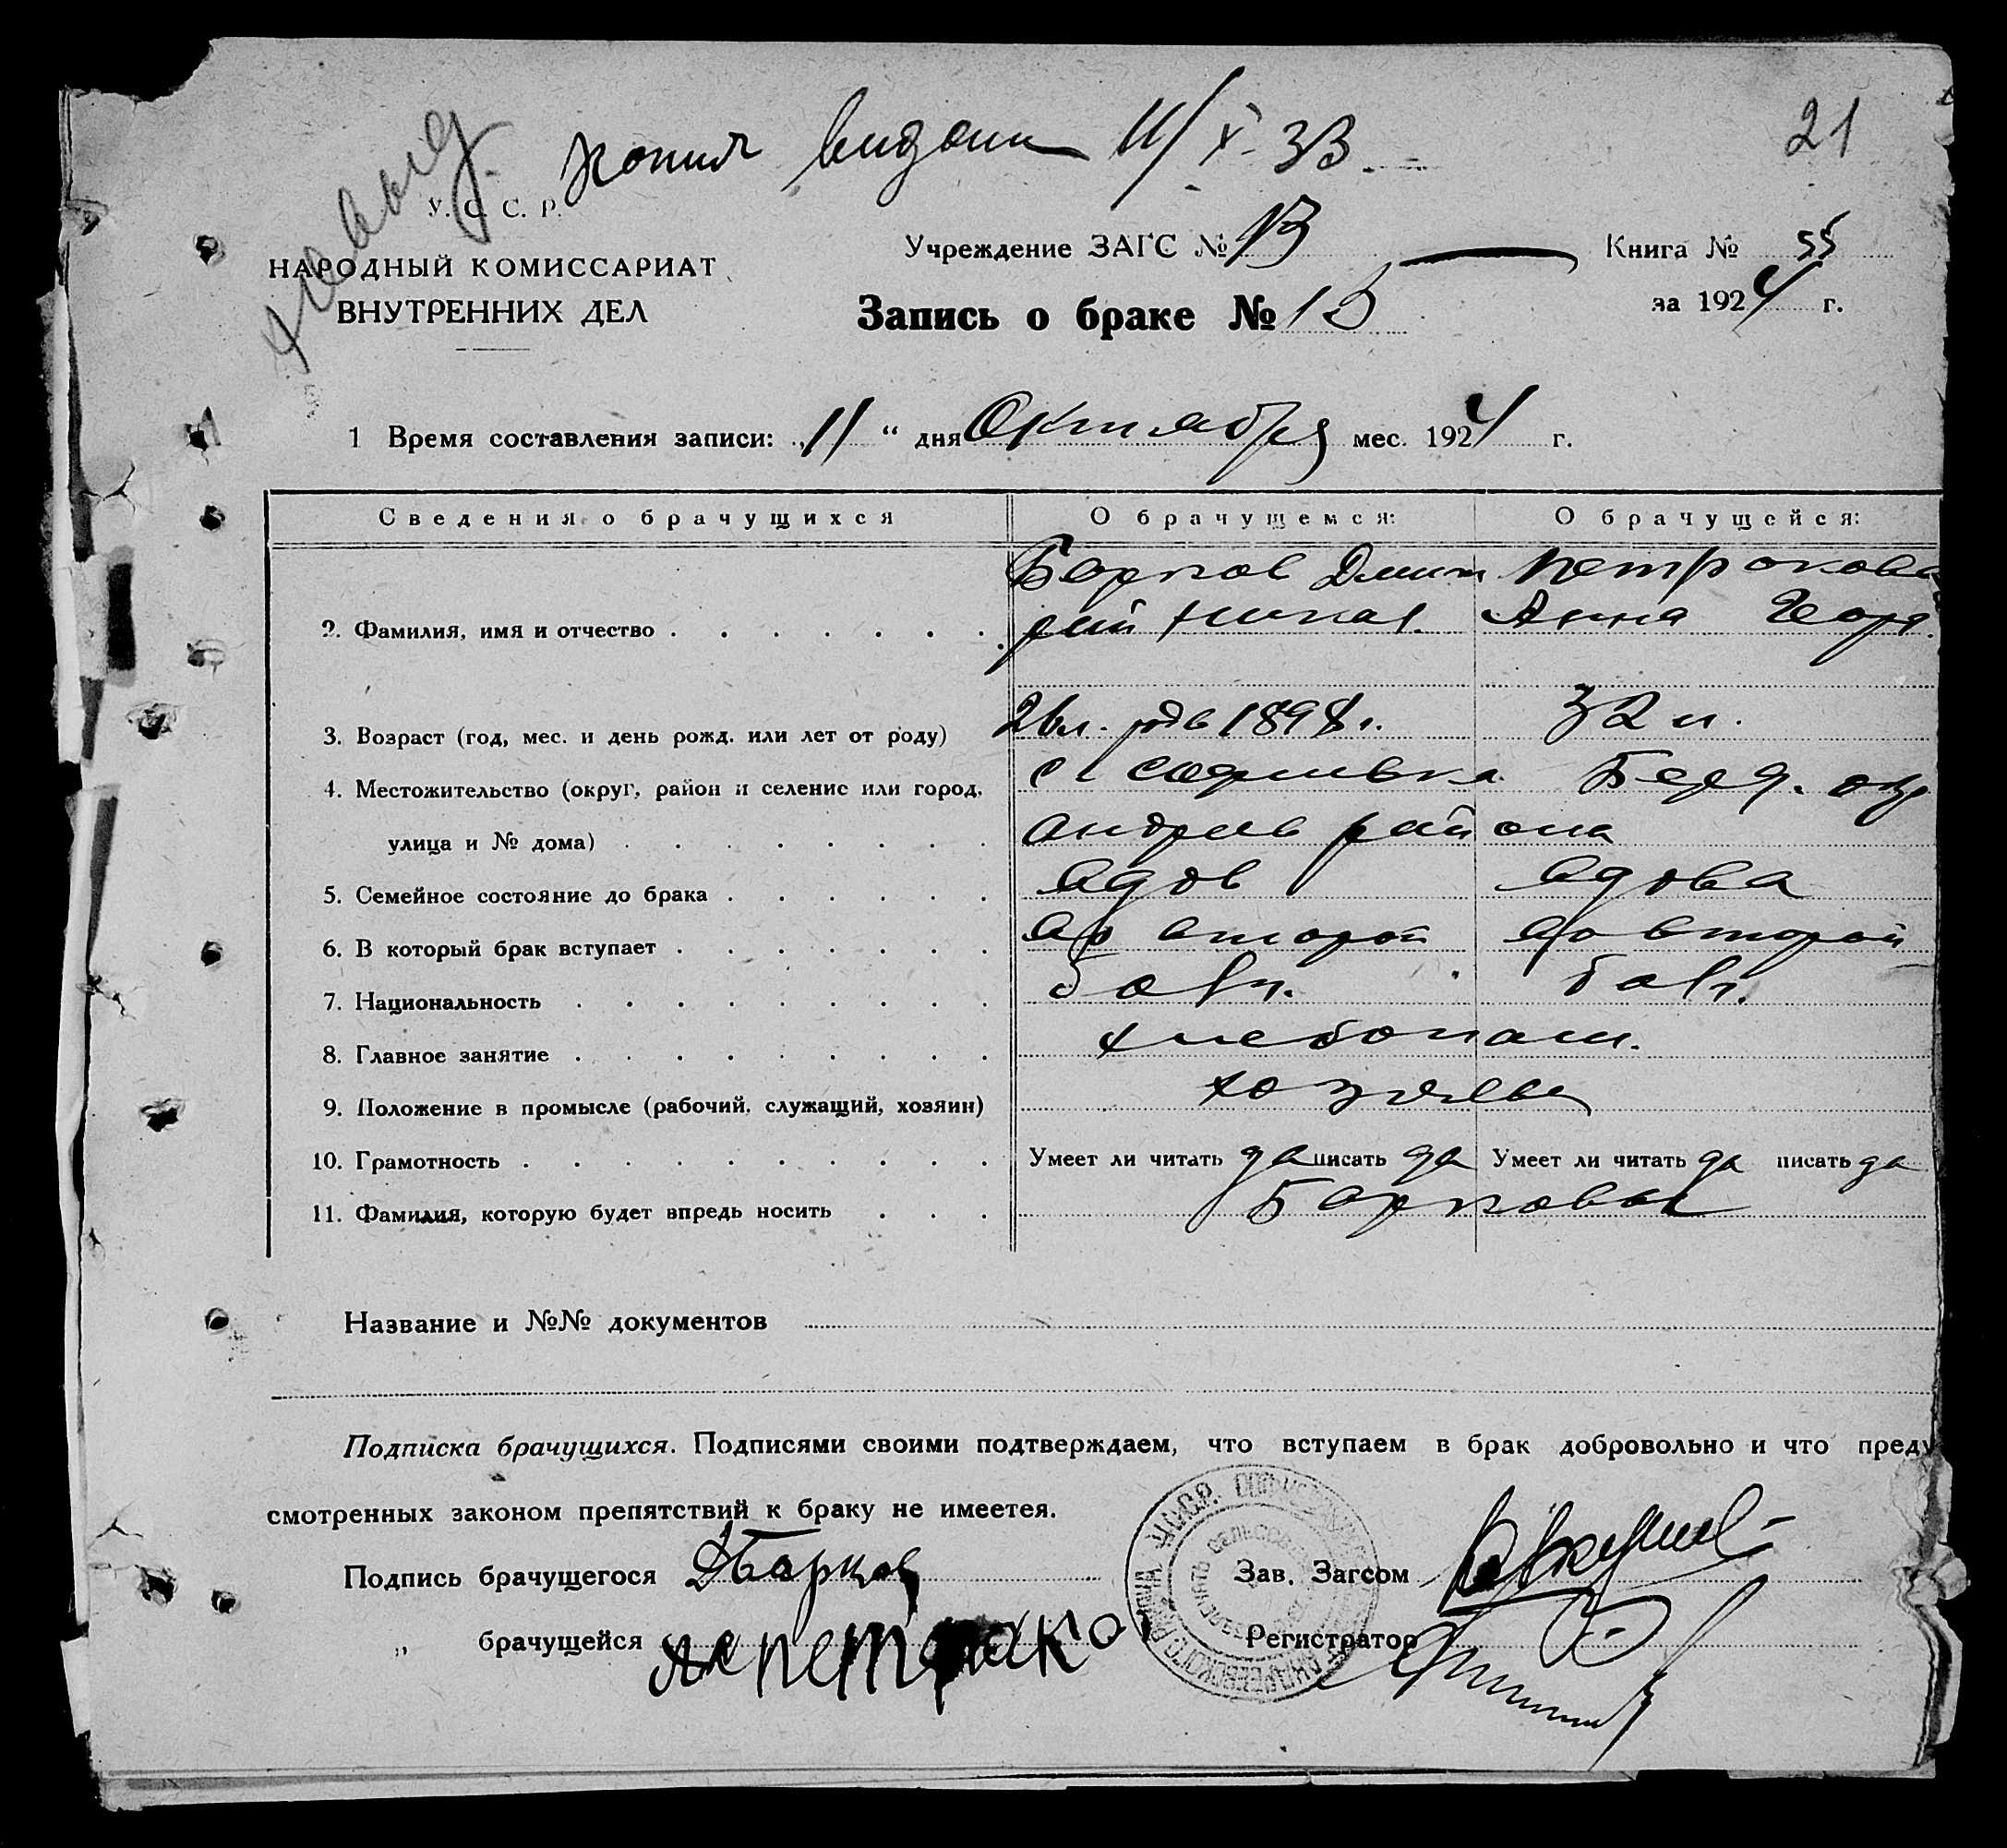 21
Копия видана 11/X-33.
У. С. С. Р.
НАРОДНЫЙ КОМИССАРИАТ
ВНУТРЕННИХ ДЕЛ
Учреждение ЗАГС № 13
Книга № 55
Запись о браке № 15
за 1924 г.
1 Время составления записи: „11“ дня Октября мес. 1924 г.
Сведения о брачущихся О брачущемся: О брачущейся:
Барков Дмит Петракова
2. Фамилия, имя и отчество рий Никол. Анна Георг.
3. Возраст (год, мес. и день рожд. или лет от роду) 26 л. 1898 г. 32 л.
4. Местожительство (округ, район и селение или город, с Софиевка Берд. окр
улица и № дома) андреев района
5. Семейное состояние до брака вдов вдова
6. В который брак вступает во второй во второй
7. Национальность болг. болг.
8. Главное занятие хлебопаш.
9. Положение в промысле (рабочий, служащий, хозяин) хозяева
10. Грамотность Умеет ли читать да писать да Умеет ли читать да писать да
11. Фамилия, которую будет впредь носить Барковы
Название и №№ документов
Подписка брачущихся. Подписями своими подтверждаем, что вступаем в брак добровольно и что преду
смотренных законом препятствий к браку не имеетея.
Подпись брачущегося ДБарков Зав. Загсом
„ брачущейся Регистратор